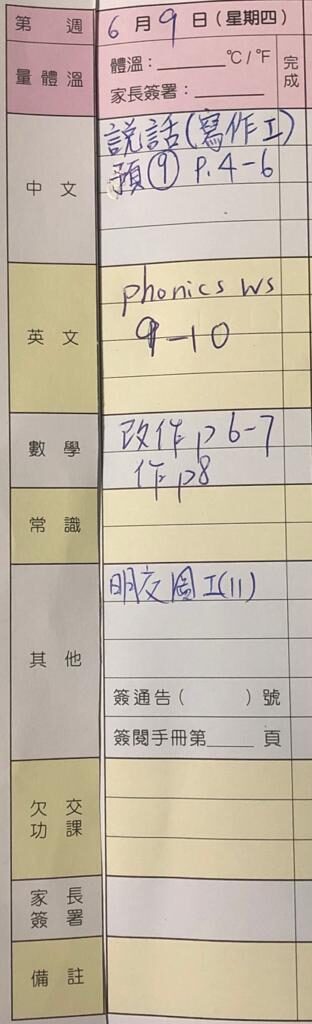 第 週 6月9日(星期四)
量體溫 體溫：______°C/°F 完成
家長簽署：______
中文 説話(寫作工)
預⑨ P.4-6
英文 phonics ws
9-10
數學 改作 p6-7
作 p8
常識
其他 明交圖工(11)
簽通告( )號
簽閱手冊第____頁
欠交功課
家長簽署
備註